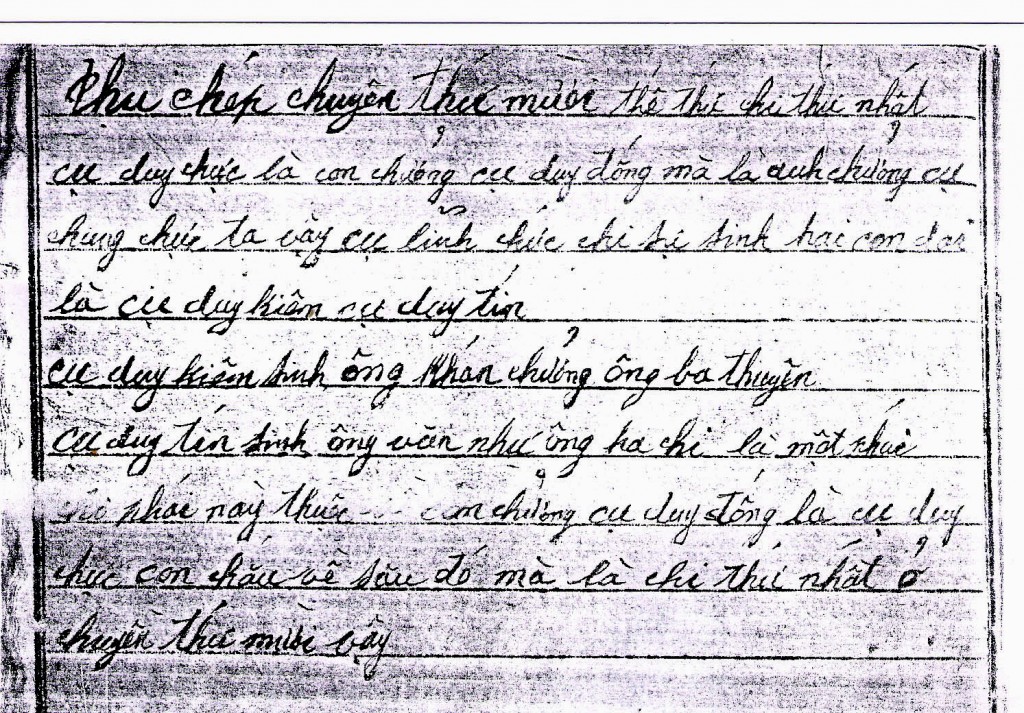 Phu chép chuyên thứ mười thế thứ chi thứ nhất
cụ duy chực là con chưởng cụ duy đống mà là anh chưởng cụ
chung chực ta vậy cụ lĩnh chức chi sự sinh hai con dai
là cụ duy kiêm cụ duy tín
cụ duy kiêm sinh ông Khán chưởng ông ba thuyên
cụ duy tín sinh ông văn như ông ha chi là một nhái
phái này thuộc con chưởng cụ duy đống là cụ duy
chực con cháu về sâu đó mà là chi thứ nhất ở
chuyên thứ mười vậy